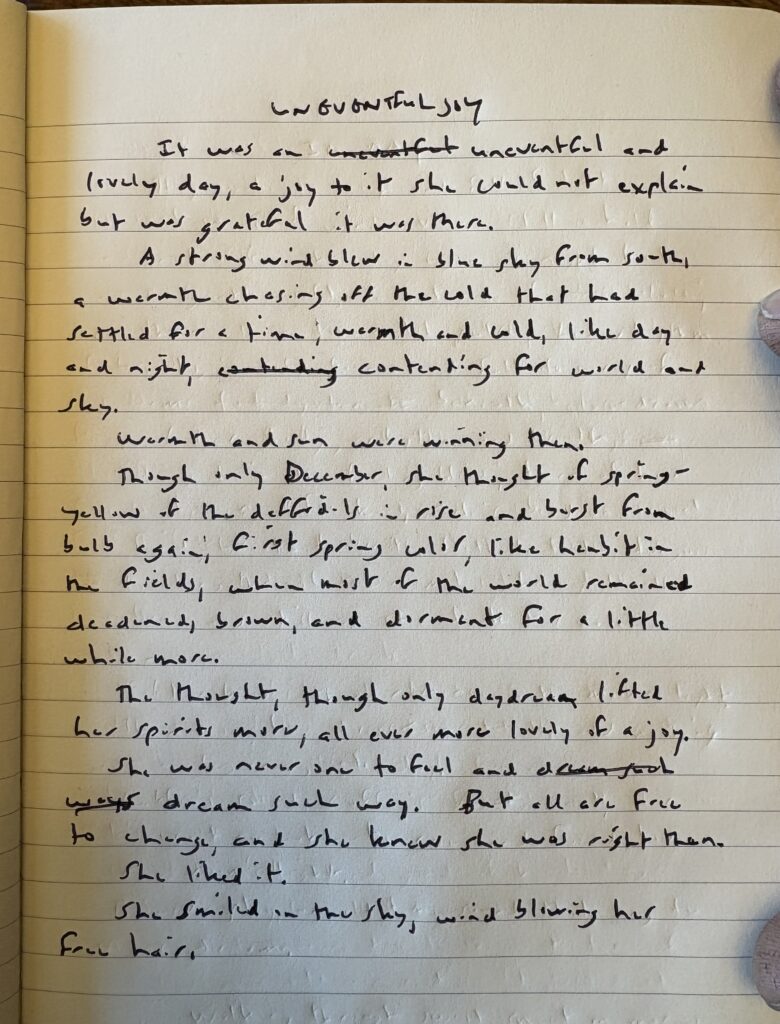 UNEVENTFUL JOY
It was an uneventful uneventful and
lovely day, a joy to it she could not explain
but was grateful it was there.
A strong wind blew in blue sky from south,
a warmth chasing off the cold that had
settled for a time; warmth and cold, like day
and night, contending contending for world and
sky.
Warmth and sun were winning then.
Though only December, she thought of spring-
yellow of the daffodils in rise and burst from
bulb again; first spring color, like henbit in
the fields, when most of the world remained
deadened, brown, and dormant for a little
while more.
The thought, though only daydream, lifted
her spirits more, all ever more lovely of a joy.
She was never one to feel and dream such
ways dream such way. But all are free
to change, and she knew she was right then.
She liked it.
She smiled in the sky, wind blowing her
free hair.